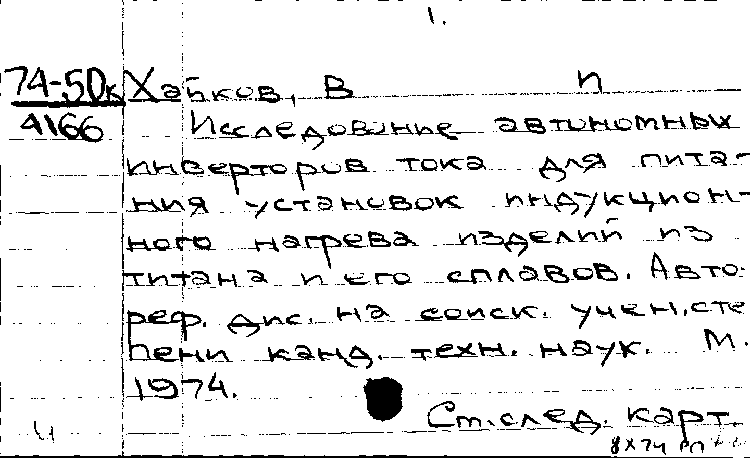 1.
74-50к Хабков, В П
4166 Исследование автономных
инверторов тока для пита-
ния установок индукцион-
ного нагрева изделий из
титана и его сплавов. Авто-
реф. дис. на соиск. учен. сте
пени канд. техн. наук. М.
1974.
См. след. карт.